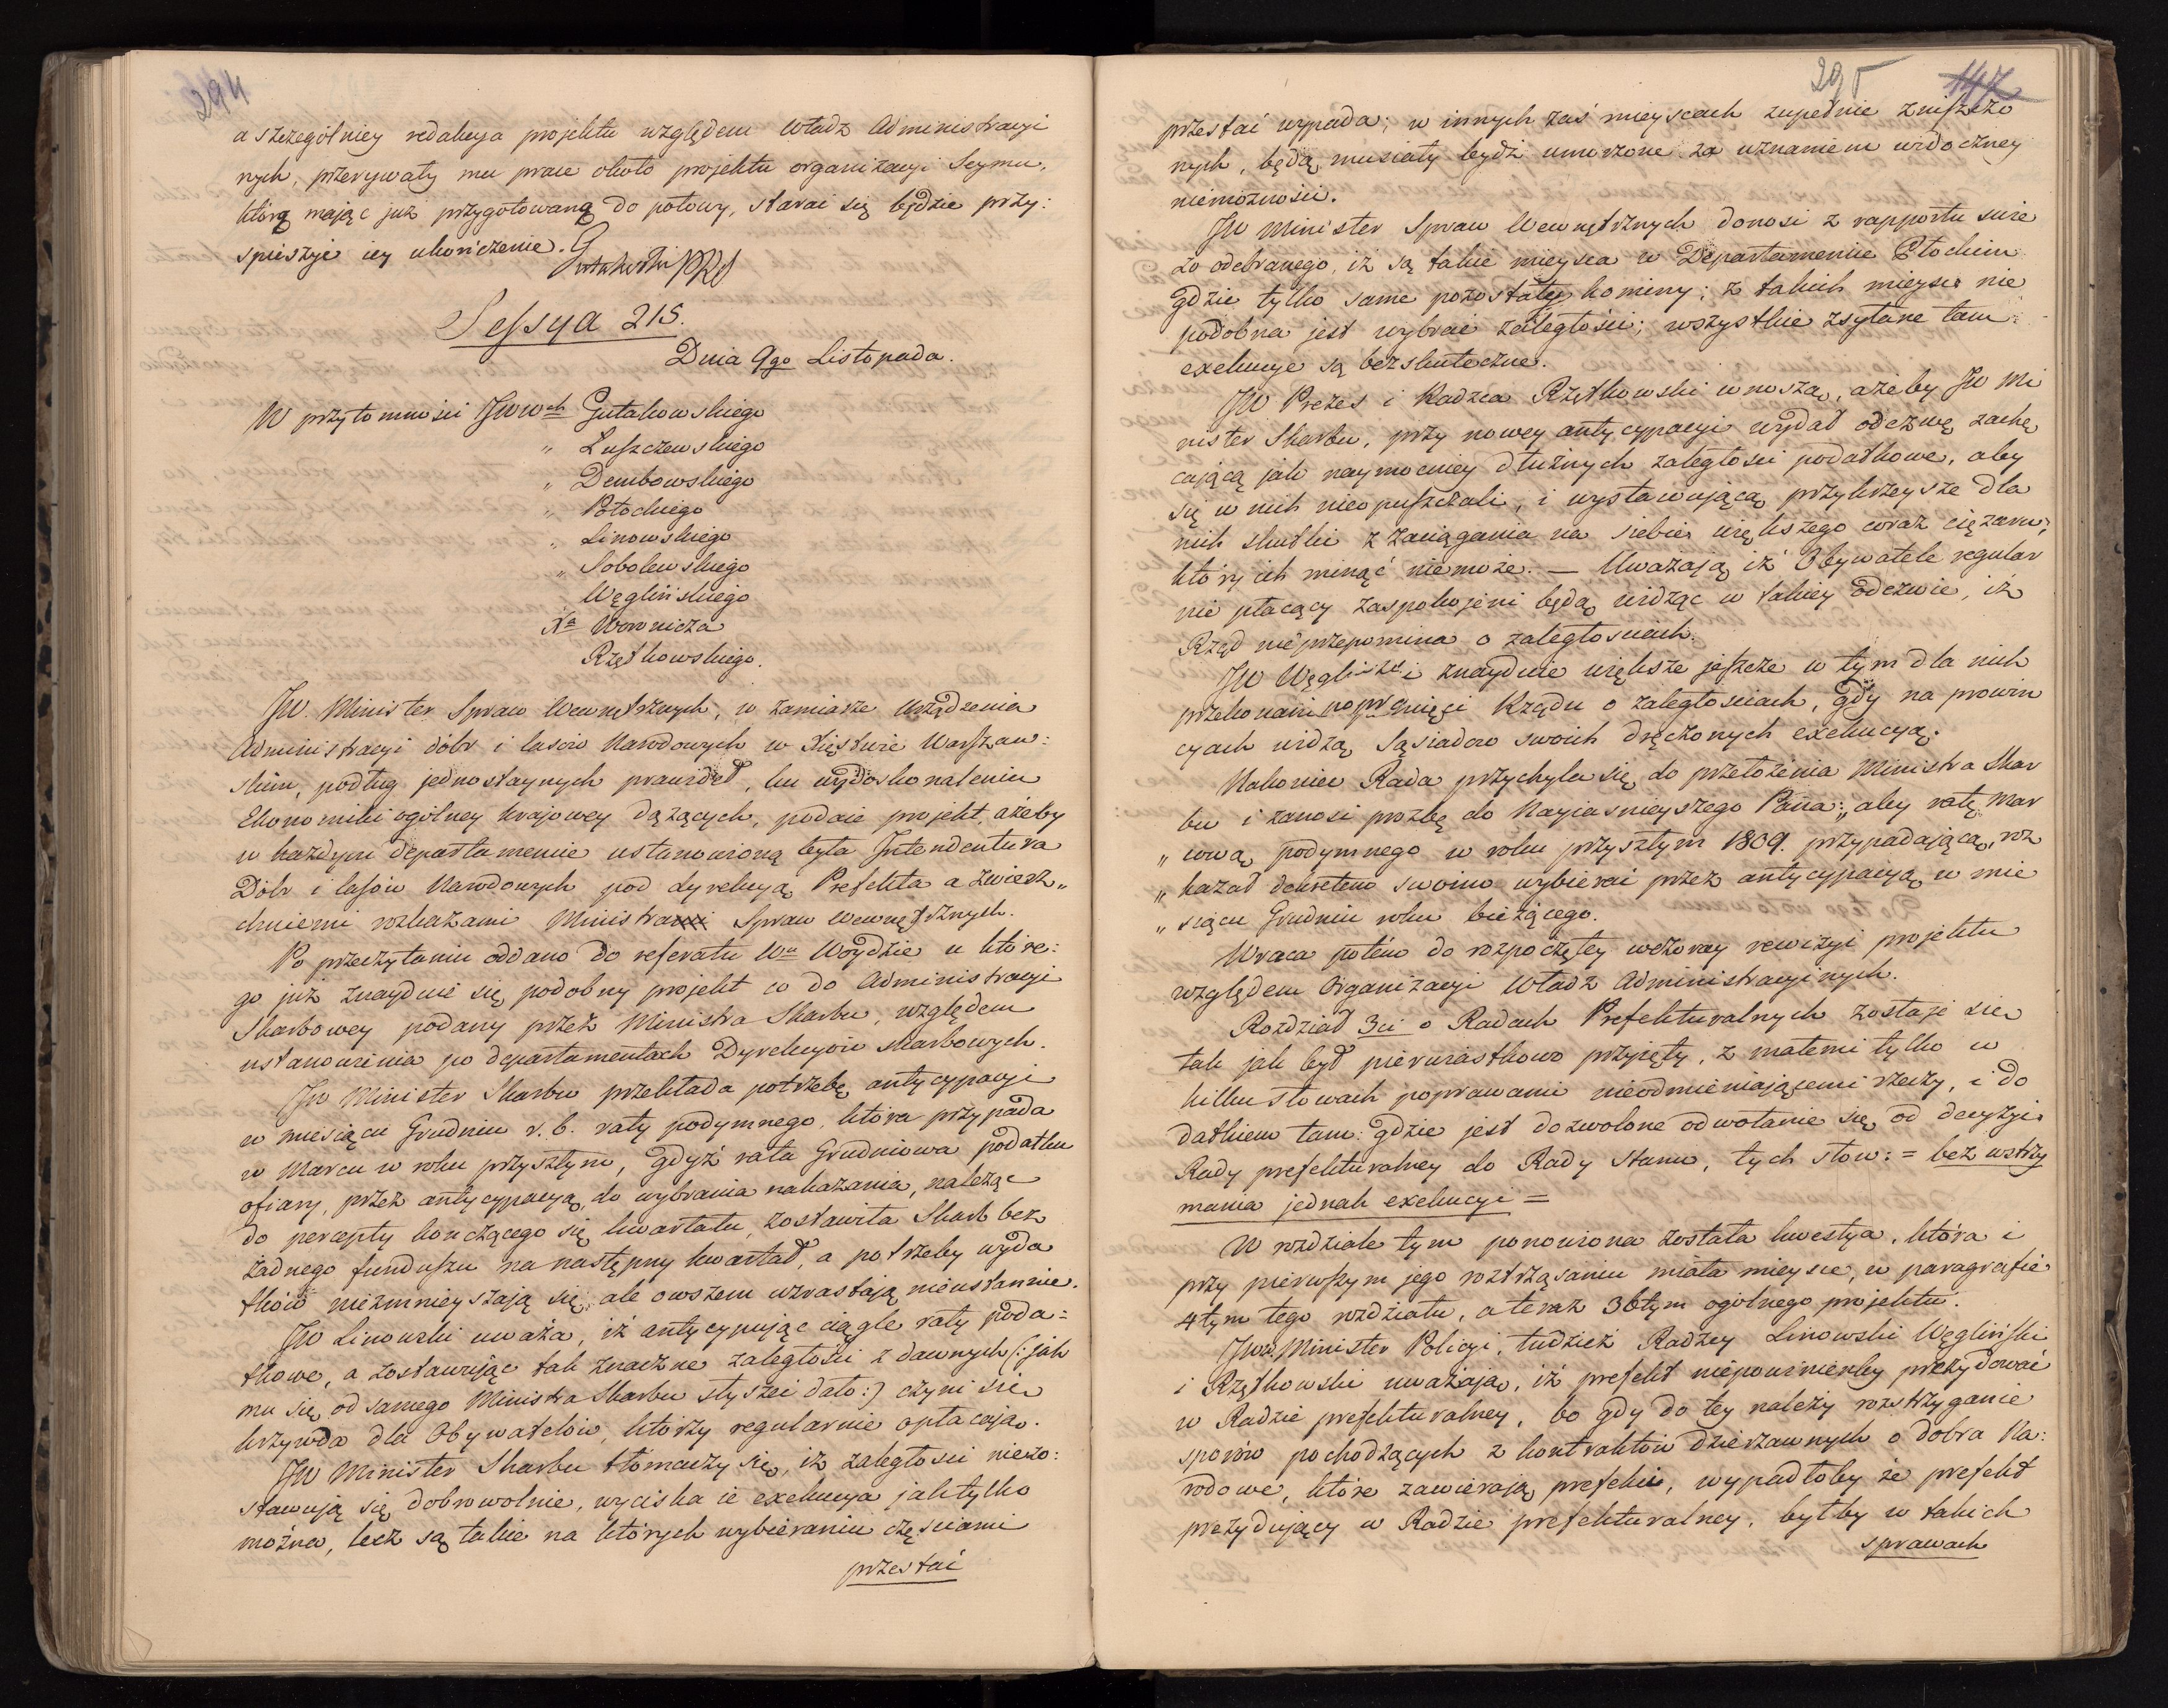 294
a szczególniey redakcya projektu względem Władz Administracyi
nych, przerywały mu prace około projektu organizacyi Seymu,
którą mając już przygotowaną do połowy, starać się będzie przy:
spieszyć iey ukończenie.
Gutakowski PRS
Sessya 215.
Dnia 9go Listopada.
W przytomności JWWch Gutakowskiego
" Łuszczewskiego
" Dembowskiego
" Potockiego
" Linowskiego
" Sobolewskiego
" Węglińskiego
Xa Woronicza
Rzętkowskiego.
JW. Minister Spraw Wewnętrznych, w zamiarze urządzenia
Administracyi dóbr i lasów Narodowych w Xięstwie Warszaw:
skim, podług jednostaynych prawideł, ku wydoskonaleniu
Ekonomiki ogólney krajowey dążących, podaie projekt, ażeby
w każdym departamencie ustanowioną była Intendentura
Dóbr i lasów Narodowych pod dyrekcyą Prefekta a zwierz„
chniemi rozkazami Ministra Spraw Wewnętrznych.
Po przeczytaniu oddano do referatu Wu Woydzie u które:
go już znayduie się podobny projekt co do Administracyi
Skarbowey podany przez Ministra Skarbu, względem
ustanowienia po departamentach Dyrekcyow skarbowych.
JW Minister Skarbu przekłada potrzebę antycypacyi
w miesiącu Grudniu r. b. raty podymnego, która przypada
w Marcu w roku przyszłym, gdyż rata Grudniowa podatku
ofiary, przez antycypacyą do wybrania nakazania, należąc
do percepty kończącego się kwartału, zostawiła Skarb bez
żadnego funduszu na następny kwartał, a potrzeby wyda
tków niezmnieyszają się, ale owszem wzrastają nieustannie.
JW Linowski uważa, iż antycypując ciągle raty poda=
tkowe, a zostawując tak znaczne zaległości z dawnych (: jak
mu się od samego Ministra Skarbu słyszeć dało :) czyni się
krzywda dla Obywatelów, którzy regularnie opłacają.
JW Minister Skarbu tłomaczy się, iż zaległości niezo:
stawują się dobrowolnie, wyciska ie exekucya jak tylko
można, lecz są takie na których wybieraniu częsciami
przestać
295
147
przestać wypada; w innych zaś mieyscach zupełnie zniszczo
nych, będą musiały bydź umorzone za uznaniem widoczney
niemożności.
JW Minister Spraw Wewnętrznych donosi z rapportu świe
żo odebranego, iż są takie mieysca w Departamencie Płockim
gdzie tylko same pozostały kominy; z takich mieysc nie
podobna jest wybrać zaległości; wszystkie zsyłane tam
exekucye są bezskuteczne.
JW Prezes i Radzca Rzętkowski wnoszą, ażeby JW Mi
nister Skarbu, przy nowey antycypacyi wydał odezwę zachę
cającą jak naymocniey dłużnych zaległości podatkowe, aby
się w nich nieopuszczali, i wystawującą przykrzeysze dla
nich skutki z zaciągania na siebie większego coraz ciężaru,
który ich minąć niemoże. — Uważają iż Obywatele regular
nie płacący zaspokojeni będą widząc w takiey odezwie, iż
Rząd nieprzepomina o zaległościach.
JW Węgliński znayduie większe jeszcze w tym dla nich
przekonanie Rządu o zaległościach, gdy na prowin
cyach widzą Sąsiadow swoich dręczonych exekucyą.
Nakoniec Rada przychyla się do przełożenia Ministra Skar
bu i zanosi prozbę do Nayiasnieyszego Pana: „aby ratę Mar
„ cową podymnego w roku przyszłym 1809. przypadającą, roz
„ kazał dekretem swoim wybierać przez antycypacyą w mie
„ siącu Grudniu roku bieżącego.
Wraca potém do rozpoczętey wczoray rewizyi projektu
względem Organizacyi Władz Administracyinych.
Rozdział 3ci o Radach Prefekturalnych zostaje się
tak jak był pierwiastkowo przyjęty, z małemi tylko w
kilku słowach poprawami nieodmieniającemi rzeczy, i do
datkiem tam: gdzie jest dozwolone odwołanie się od decyzyi
Rady prefekturalney do Rady Stanu, tych słow: = bez wstrzy
mania jednak exekucyi =
W rozdziale tym ponowiona została kwestya, która i
przy pierwszym jego roztrząsaniu miała mieysce, w paragrafie
4tym tego rozdziału, a teraz 36tym ogólnego projektu.
JWW. Minister Policyi, tudzież Radzcy Linowski Węgliński
i Rzętkowski uważają, iż prefekt niepowinienby prezydować
w Radzie prefekturalney, bo gdy do tey należy rozstrzyganie
sporów pochodzących z kontraktów dzierzawnych o dobra Na:
rodowe, które zawierają prefekci, wypadłoby że prefekt
prezydujący w Radzie prefekturalney, byłby w takich
sprawach